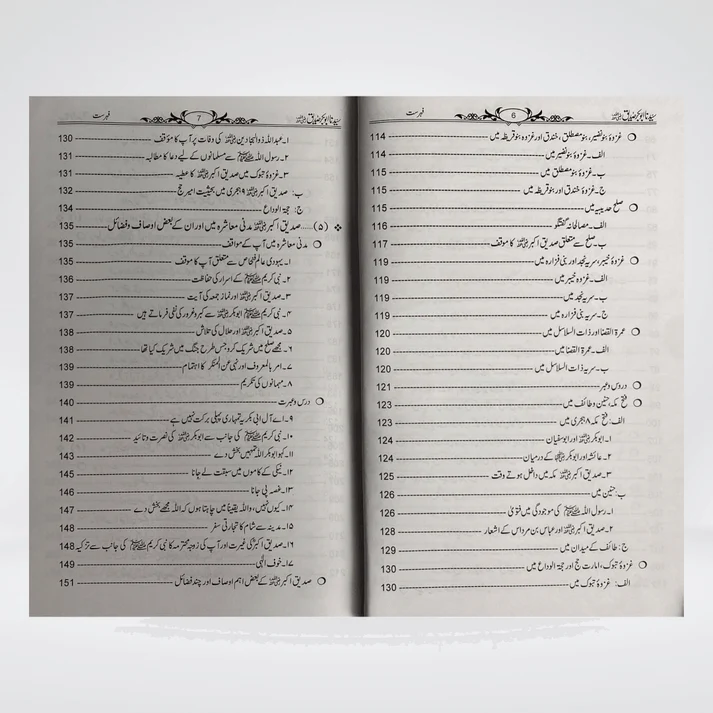 سیدنا ابوبکر صدیق رضی اللہ عنہ 6 فہرست
غزوۂ بنونضیر، بنو مصطلق، خندق اور غزوہ بنو قریظہ میں 114
الف۔ غزوۂ بنونضیر میں 114
ب۔ غزوۂ بنو مصطلق میں 115
ج۔ غزوۂ خندق اور بنو قریظہ میں 115
صلح حدیبیہ میں 115
الف۔ مصالحانہ گفتگو 116
ب۔ صلح سے متعلق صدیق اکبر رضی اللہ عنہ کا موقف 117
غزوۂ خیبر، سریہ نجد اور بنی فزارہ میں 119
الف۔ غزوہ خیبر میں 119
ب۔ سریہ نجد میں 119
ج۔ سریہ بنی فزارہ میں 119
عمرۃ القضا اور ذات السلاسل میں 120
الف۔ عمرۃ القضا میں 120
ب۔ سریہ ذات السلاسل میں 120
دروس وعبر 121
فتح مکہ، حنین و طائف میں 123
الف: فتح مکہ ۸ ہجری میں 123
۱۔ ابوبکر رضی اللہ عنہ اور ابوسفیان 124
۲۔ عائشہ اور ابوبکر رضی اللہ عنہما کے درمیان 124
۳۔ صدیق اکبر رضی اللہ عنہ مکہ میں داخل ہوتے وقت 125
ب: حنین میں 126
۱۔ رسول اللہ ﷺ کی موجودگی میں فتویٰ 126
۲۔ صدیق اکبر رضی اللہ عنہ اور عباس بن مرداس کے اشعار 128
ج: طائف کے میدان میں 129
غزوۂ تبوک، امارت حج اور حجۃ الوداع میں 130
الف: غزوۂ تبوک میں 130
سیدنا ابوبکر صدیق رضی اللہ عنہ 7 فہرست
۱۔ عبداللہ ذوالبجادین رضی اللہ عنہ کی وفات پر آپ کا مؤقف 130
۲۔ رسول اللہ ﷺ سے مسلمانوں کے لیے دعا کا مطالبہ 131
۳۔ غزوۂ تبوک میں صدیق اکبر رضی اللہ عنہ کا عطیہ 131
ب: صدیق اکبر رضی اللہ عنہ ۹ ہجری میں بحیثیت امیر حج 132
ج: حجۃ الوداع 134
(۵).....صدیق اکبر رضی اللہ عنہ مدنی معاشرہ میں اور ان کے بعض اوصاف وفضائل 135
مدنی معاشرہ میں آپ کے مواقف 135
۱۔ یہودی عالم فنحاص سے متعلق آپ کا موقف 135
۲۔ نبی کریم ﷺ کے اسرار کی حفاظت 136
۳۔ صدیق اکبر رضی اللہ عنہ اور نماز جمعہ کی آیت 137
۴۔ نبی کریم ﷺ ابوبکر رضی اللہ عنہ سے کبر وغرور کی نفی فرماتے ہیں 137
۵۔ صدیق اکبر رضی اللہ عنہ اور حلال کی تلاش 138
۶۔ مجھے صلح میں شریک کرو جس طرح جنگ میں شریک کیا تھا 138
۷۔ امر بالمعروف اور نہی عن المنکر کا اہتمام 139
۸۔ مہمانوں کی تکریم 139
درس وعبرت 140
۹۔ اے آل ابی بکر یہ تمہاری پہلی برکت نہیں ہے 141
۱۰۔ نبی کریم ﷺ کی جانب سے ابوبکر رضی اللہ عنہ کی نصرت و تائید 142
۱۱۔ کہو ابوبکر اللہ تمہیں بخش دے 143
۱۲۔ نیکی کے کاموں میں سبقت لے جانا 145
۱۳۔ غصہ پی جانا 146
۱۴۔ کیوں نہیں، واللہ یقیناً میں چاہتا ہوں کہ اللہ مجھے بخش دے 147
۱۵۔ مدینہ سے شام کا تجارتی سفر 148
۱۶۔ صدیق اکبر رضی اللہ عنہ کی غیرت اور آپ کی زوجہ محترمہ کا نبی کریم ﷺ کی جانب سے تزکیہ 148
۱۷۔ خوف الٰہی 149
صدیق اکبر رضی اللہ عنہ کے بعض اہم اوصاف اور چند فضائل 151